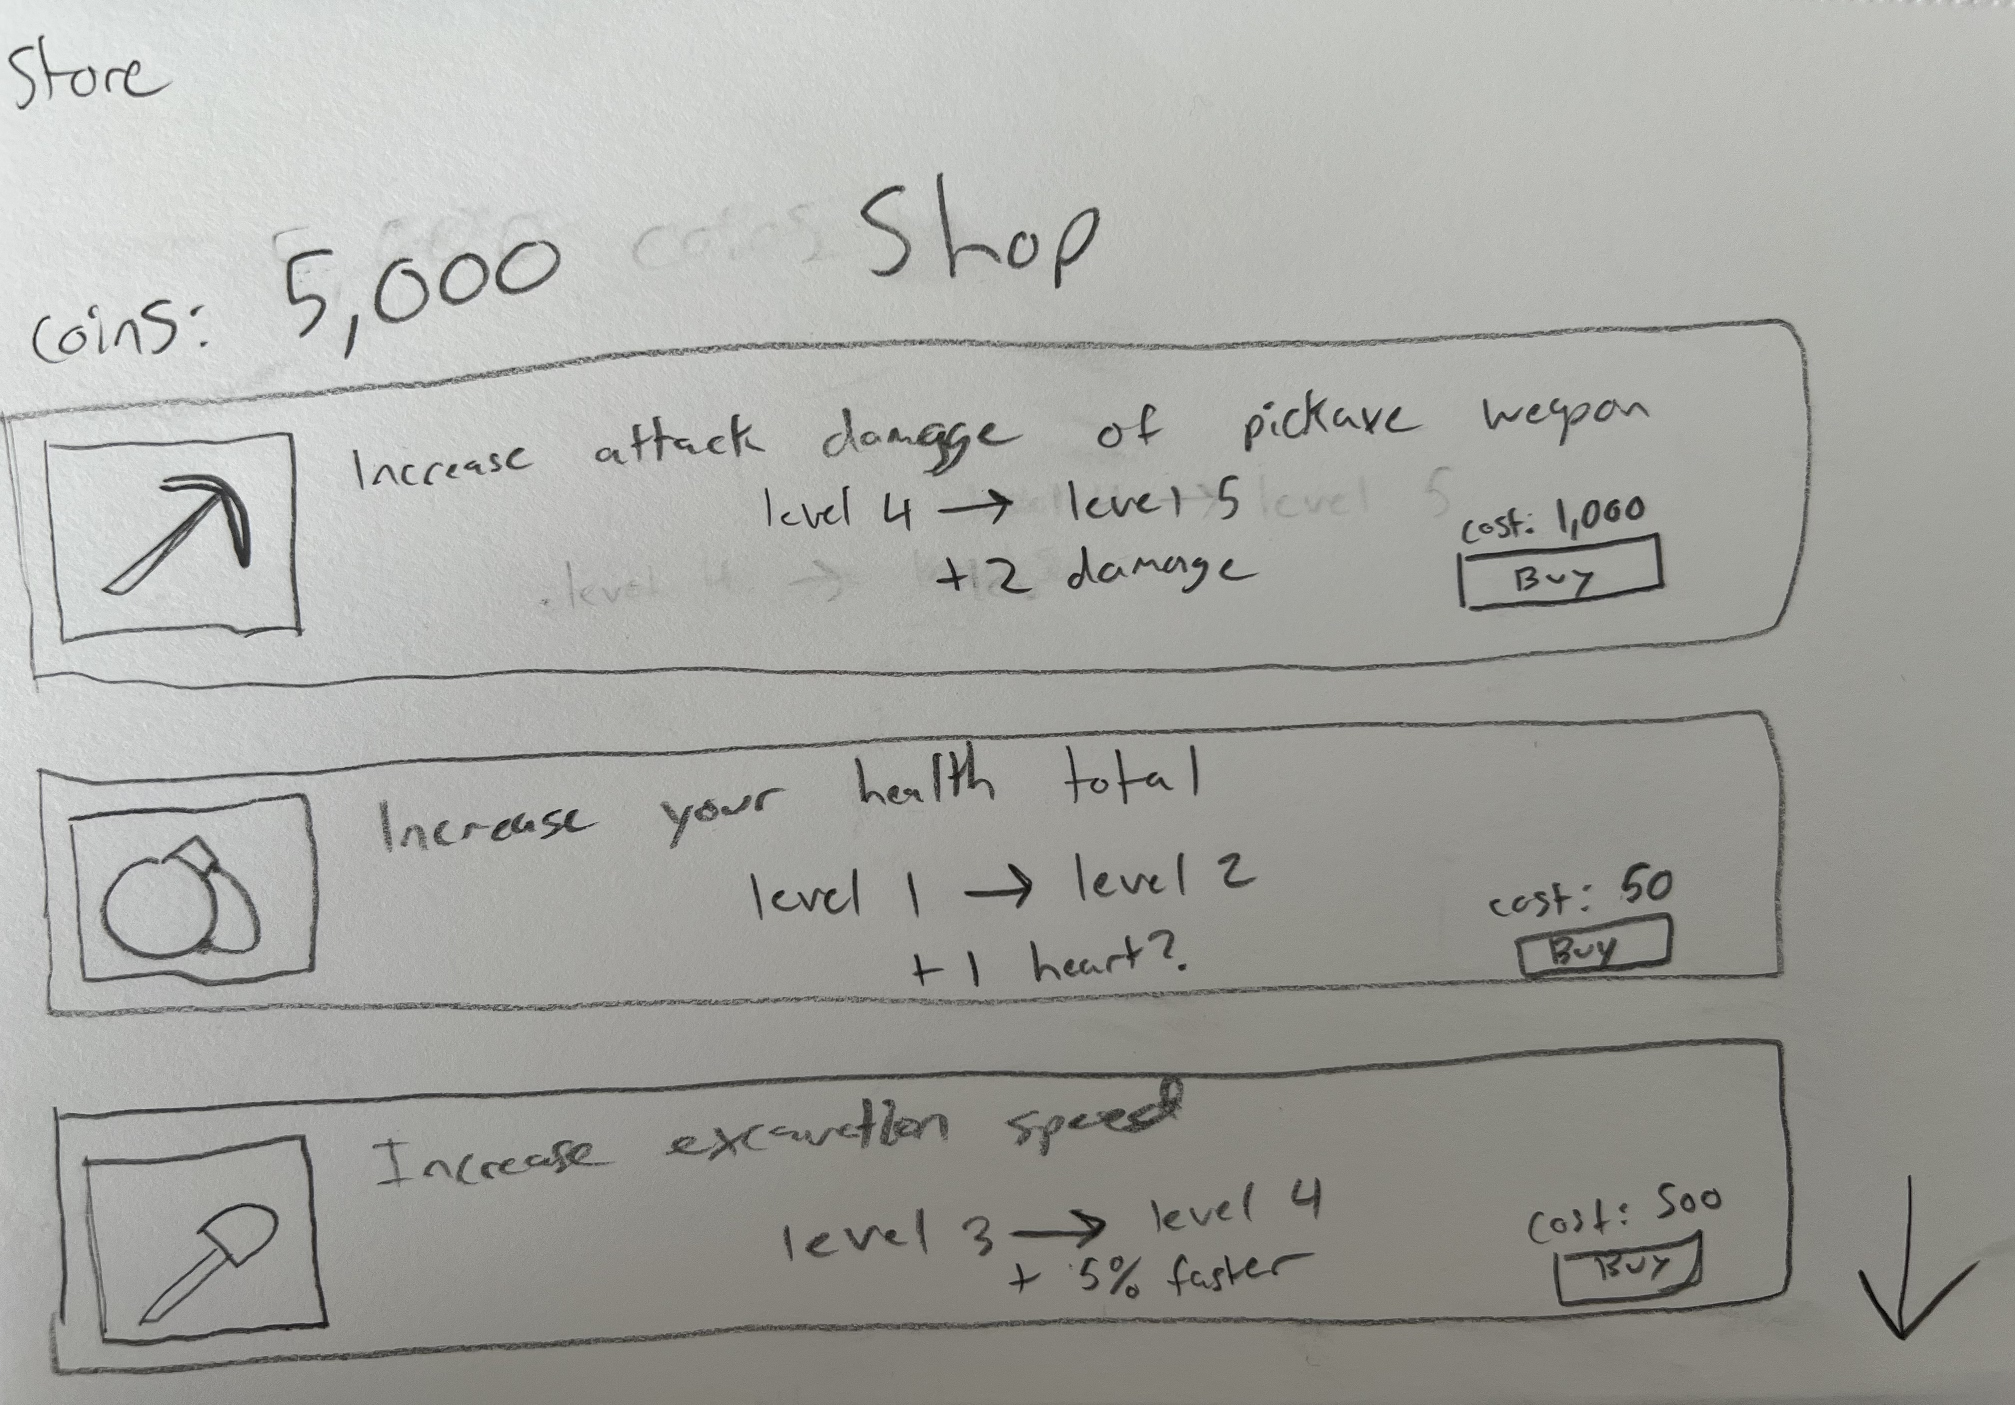 Store
Shop
coins: 5,000
Increase attack damage of pickaxe weapon
level 4 → level 5
+2 damage
cost: 1,000
Buy
Increase your health total
level 1 → level 2
+1 heart?
cost: 50
Buy
Increase excavation speed
level 3 → level 4
+ 5% faster
cost: 500
Buy